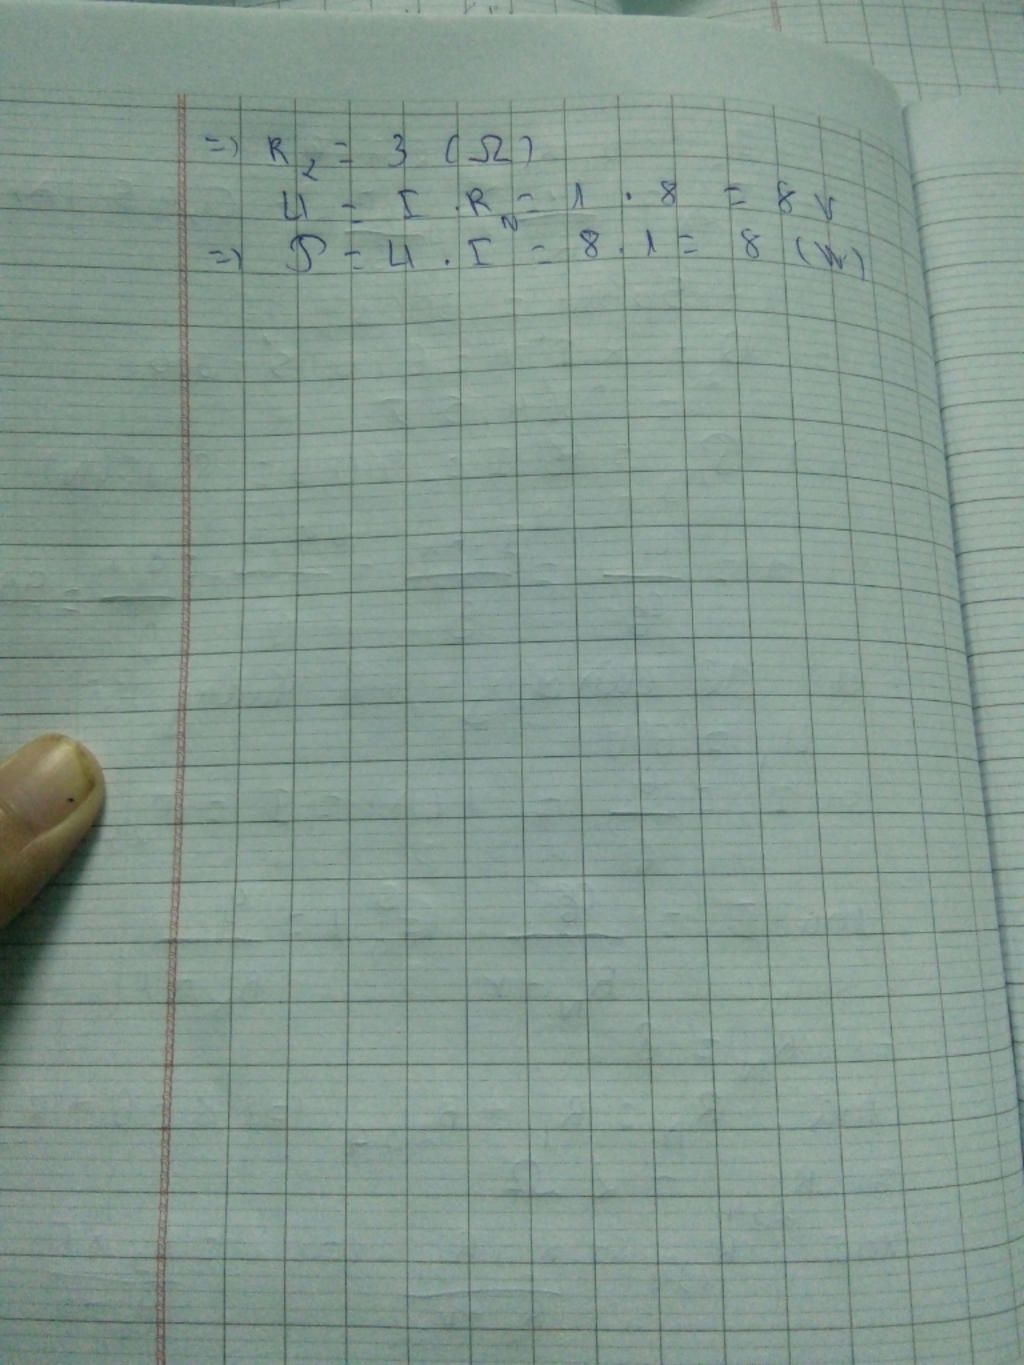 => R₂ = 3 (Ω)
U = I . R_N = 1 . 8 = 8 V
=> P = U . I = 8 . 1 = 8 (W)